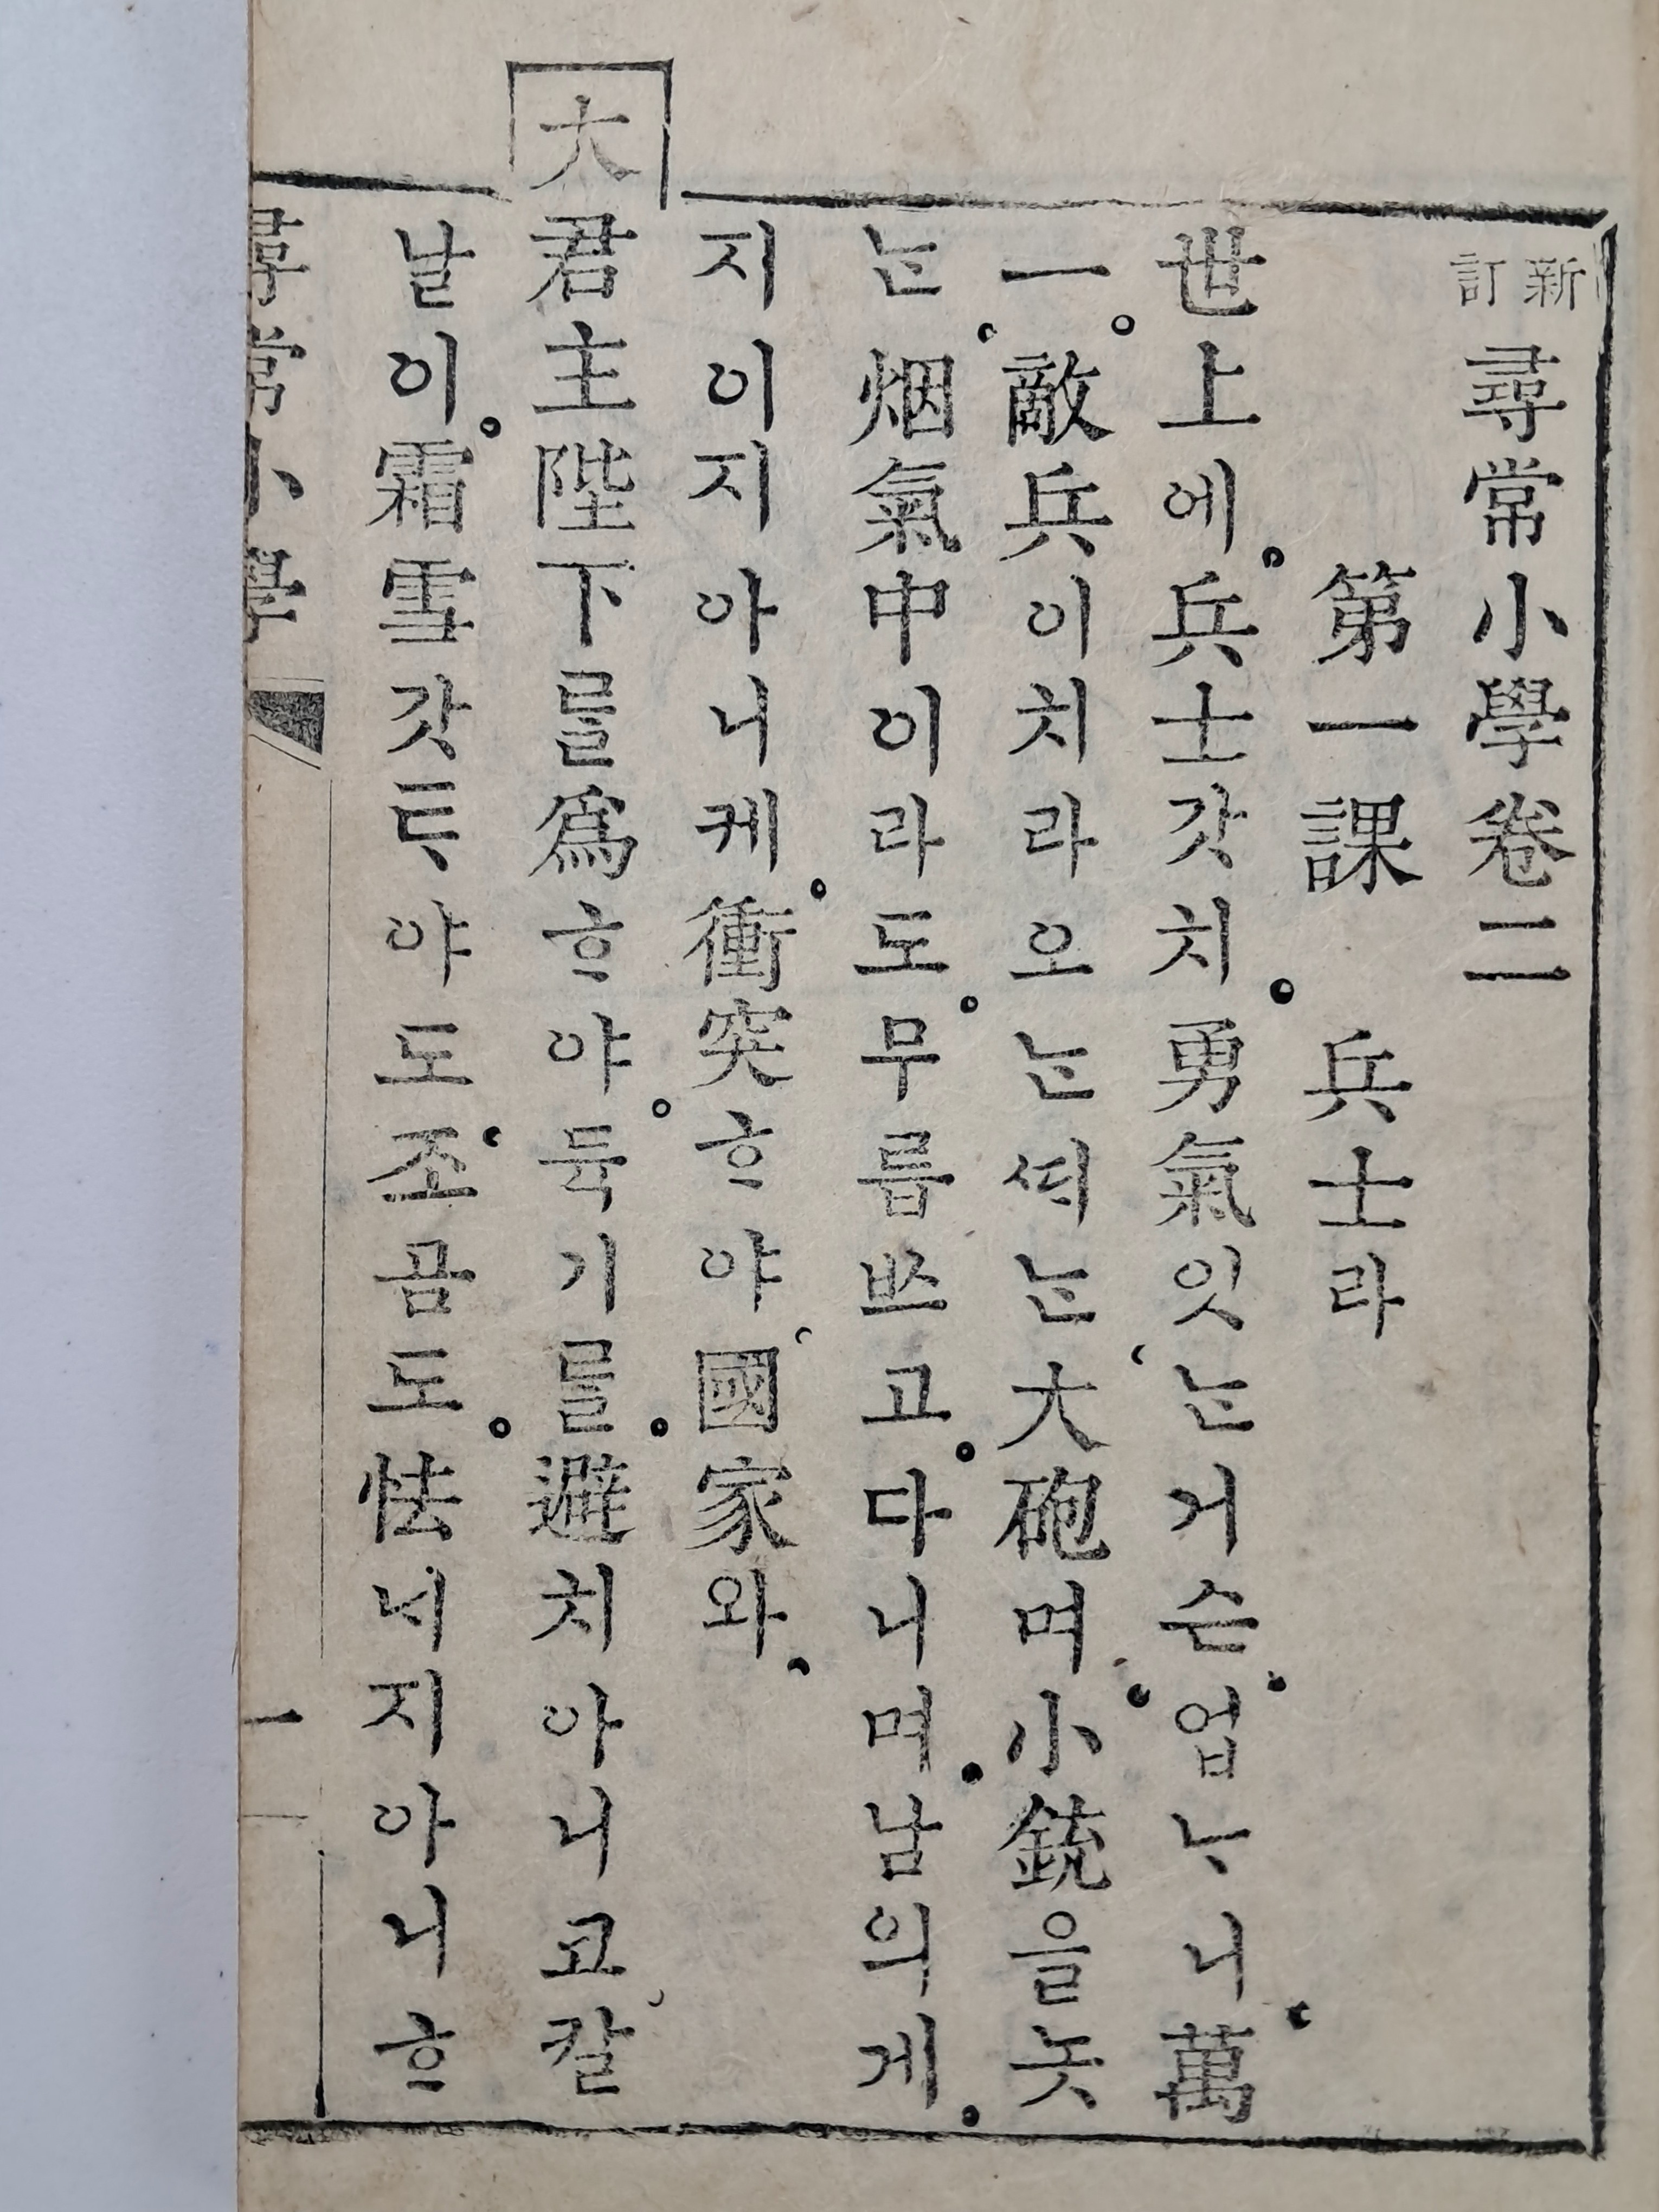 新訂 尋常小學卷二
第一課 兵士라
世上에。兵士갓치。勇氣잇ᄂᆞᆫ거슨、업ᄂᆞ니、萬
一。敵兵이치라오ᄂᆞᆫᄯᆡᄂᆞᆫ、大砲며、小銃을놋
ᄂᆞᆫ、烟氣中이라도。무릅ᄡᅳ고。다니며。남의게。
지이지아니케。衝突ᄒᆞ야、國家와、
大君主陛下를爲ᄒᆞ야。듁기를。避치아니고、칼
날이。霜雪갓ᄐᆞ야도、조곰도。怯ᄂᆡ지아니ᄒᆞ
尋常小學 一